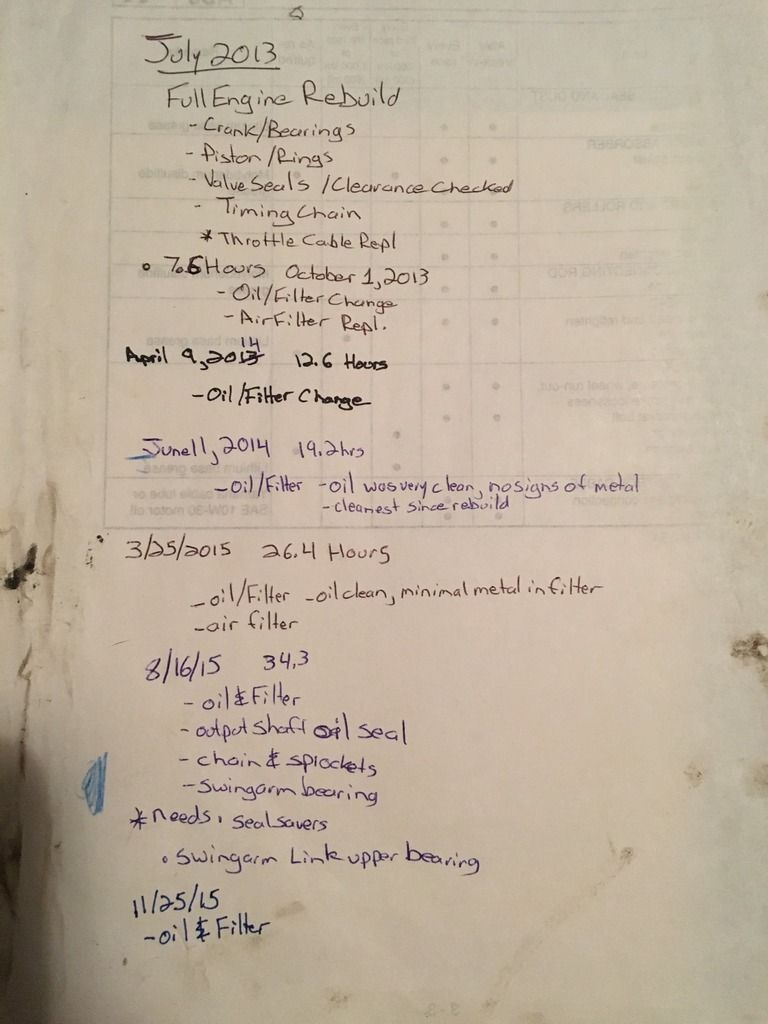 July 2013
Full Engine Rebuild
- Crank/Bearings
- Piston/Rings
- Valve Seals /Clearance Checked
- Timing Chain
* Throttle Cable Repl
• 7.6 Hours October 1, 2013
- Oil/Filter Change
- Air Filter Repl.
April 9, 2014 12.6 Hours
- Oil/Filter Change
June 11, 2014 19.2 hrs
- Oil/Filter - oil was very clean, no signs of metal
- cleanest since rebuild
3/25/2015 26.4 Hours
- oil/Filter - oil clean, minimal metal in filter
- air filter
8/16/15 34.3
- oil & Filter
- output shaft oil seal
- chain & sprockets
- Swingarm bearing
* needs • seal savers
• Swingarm Link upper bearing
11/25/15
- oil & Filter